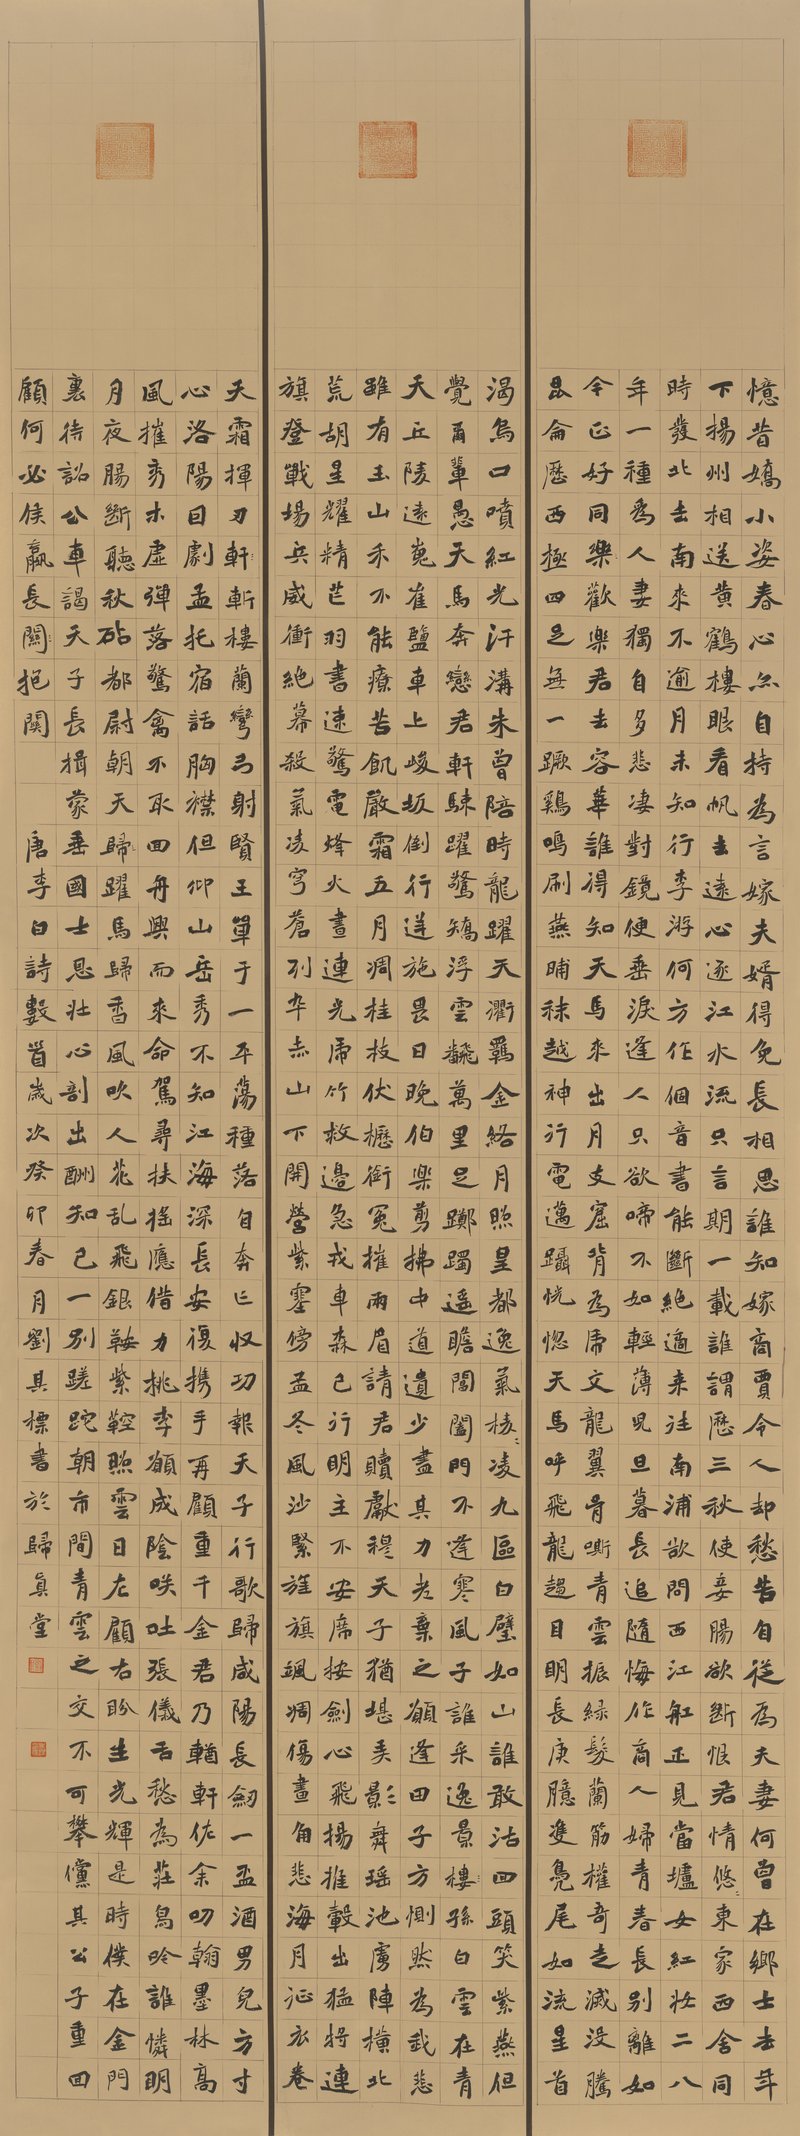 憶昔嬌小姿春心亦自持為言嫁夫婿得免長相思誰知嫁商賈令人却愁苦自從為夫妻何曾在鄉土去年
下揚州相送黃鶴樓眼看帆去遠心逐江水流只言期一載誰謂歷三秋使妾腸欲斷恨君情悠〻東家西舍同
時發北去南來不逾月未知行李游何方作個音書能斷絕適來往南浦欲問西江船正見當壚女紅妝二八
年一種為人妻獨自多悲凄對鏡便垂淚逢人只欲啼不如輕薄兒旦暮長追隨悔作商人婦青春長別離如
今正好同樂〻歡樂君去容華誰得知天馬來出月支窟背為虎文龍翼骨嘶青雲振綠髮蘭筋權奇走滅沒騰
昆侖歷西極四足無一蹶鷄鳴刷燕晡秣越神行電邁躡恍惚天馬呼飛龍趨目明長庚臆雙鳧尾如流星首
渴烏口噴紅光汗溝朱曾陪時龍躍天衢羈金絡月照皇都逸氣稜〻凌九區白璧如山誰敢沽回頭笑紫燕但
覺爾輩愚天馬奔戀君軒駷躍驚矯浮雲翻萬里足躑躅遙瞻閶闔門不逢寒風子誰采逸景樓〻孫白雲在青
天丘陵遠嵬崔鹽車上峻坂倒行逆施畏日晚伯樂剪拂中道遺少盡其力老棄之願逢田子方惻然為我悲
雖有玉山禾不能療苦飢嚴霜五月凋桂枝伏櫪銜冤摧兩眉請君贖獻穆天子猶堪弄影舞瑤池虜陣橫北
荒胡星耀精芒羽書速驚電烽火晝連光虎竹救邊急戎車森已行明主不安席按劍心飛揚推轂出猛將連
旗登戰場兵威衝絕幕殺氣凌穹蒼列卒赤山下開營紫塞傍孟冬風沙緊旌旗颯凋傷畫角悲海月征衣卷
天霜揮刃軒〻斬樓蘭彎弓射賢王單于一平蕩種落自奔亡收功報天子行歌歸咸陽長劍一盃酒男兒方寸
心洛陽因劇孟托宿話胸襟但仰山岳秀不知江海深長安復攜手再顧重千金君乃輶軒佐余叨翰墨林高
風摧秀木虛彈落驚禽不取回舟興而來命駕尋扶搖應借力桃李願成陰笑吐張儀舌愁為莊舄吟誰憐明
月夜腸斷聽秋砧都尉朝天歸〻躍馬歸香風吹人花乱飛銀鞍紫鞚照雲日左顧右盼生光輝是時僕在金門
裏待詔公車謁天子長揖蒙垂國士恩壯心剖出酬知己一別蹉跎朝市間青雲之交不可攀儻其公子重回
顧何必侯嬴長關〻抱關
唐李白詩數首歲次癸卯春月劉其標書於歸真堂